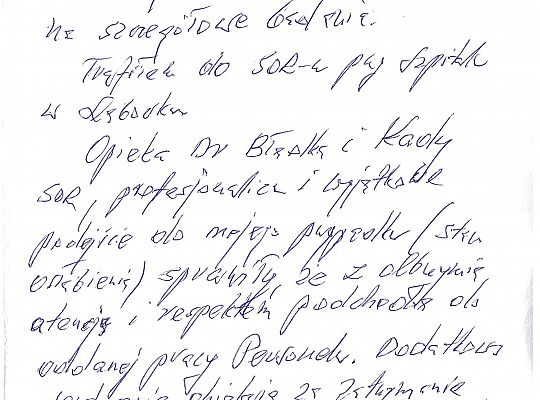 na szczegółowe badania.
Trafiłem do SOR-u przy Szpitalu
w Lęborku
Opieka Dr Błądka i Kadry
SOR, profesjonalizm i wyjątkowe
podejście do mojego przypadku (stan
osłabienia) sprawiły, że z olbrzymią
atencją i respektem podchodzę do
oddanej pracy Personelu. Dodatkowe
za zatrzymanie